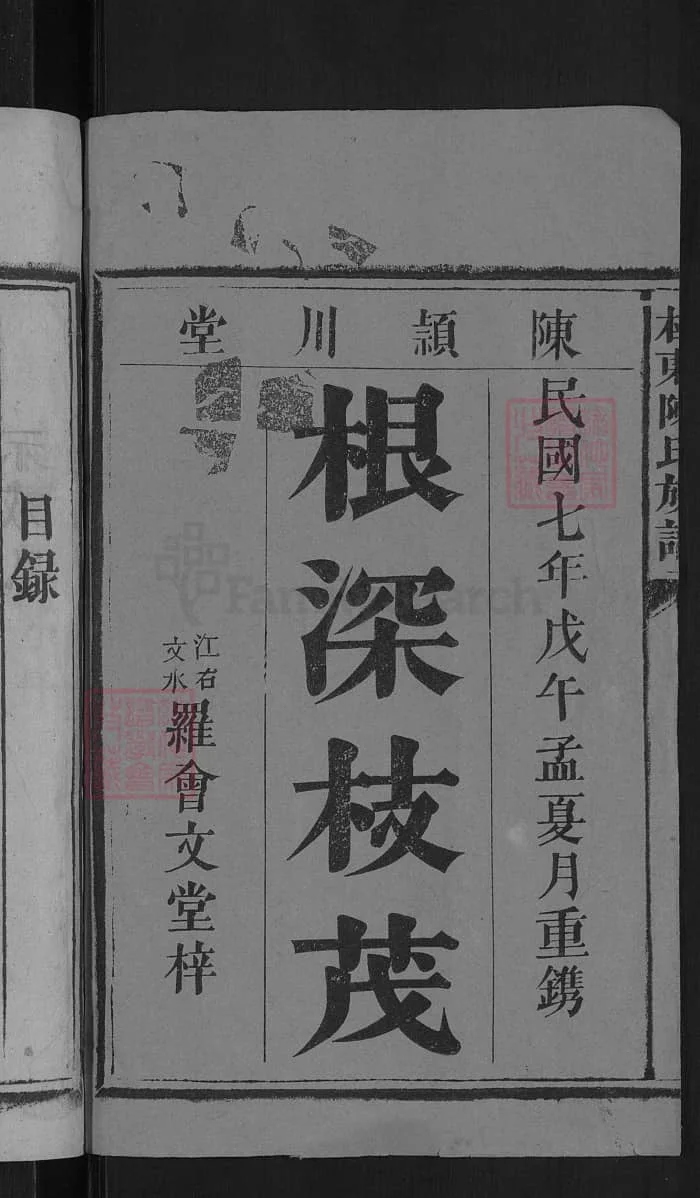 東陳氏族譜
陳潁川堂
民國七年戊午孟夏月重鐫
根深枝茂
江右
文水
羅會文堂梓
目録
FamilySearch